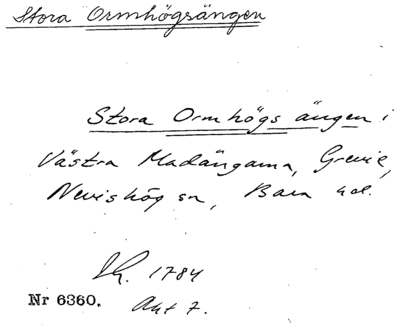 Stora Ormhögsängen
Stora Ormhögs ängen i
Västra Madängarna, Grevie,
Nevishög sn, Bara hd.
Sk. 1784
Nr 6360. Akt 7.